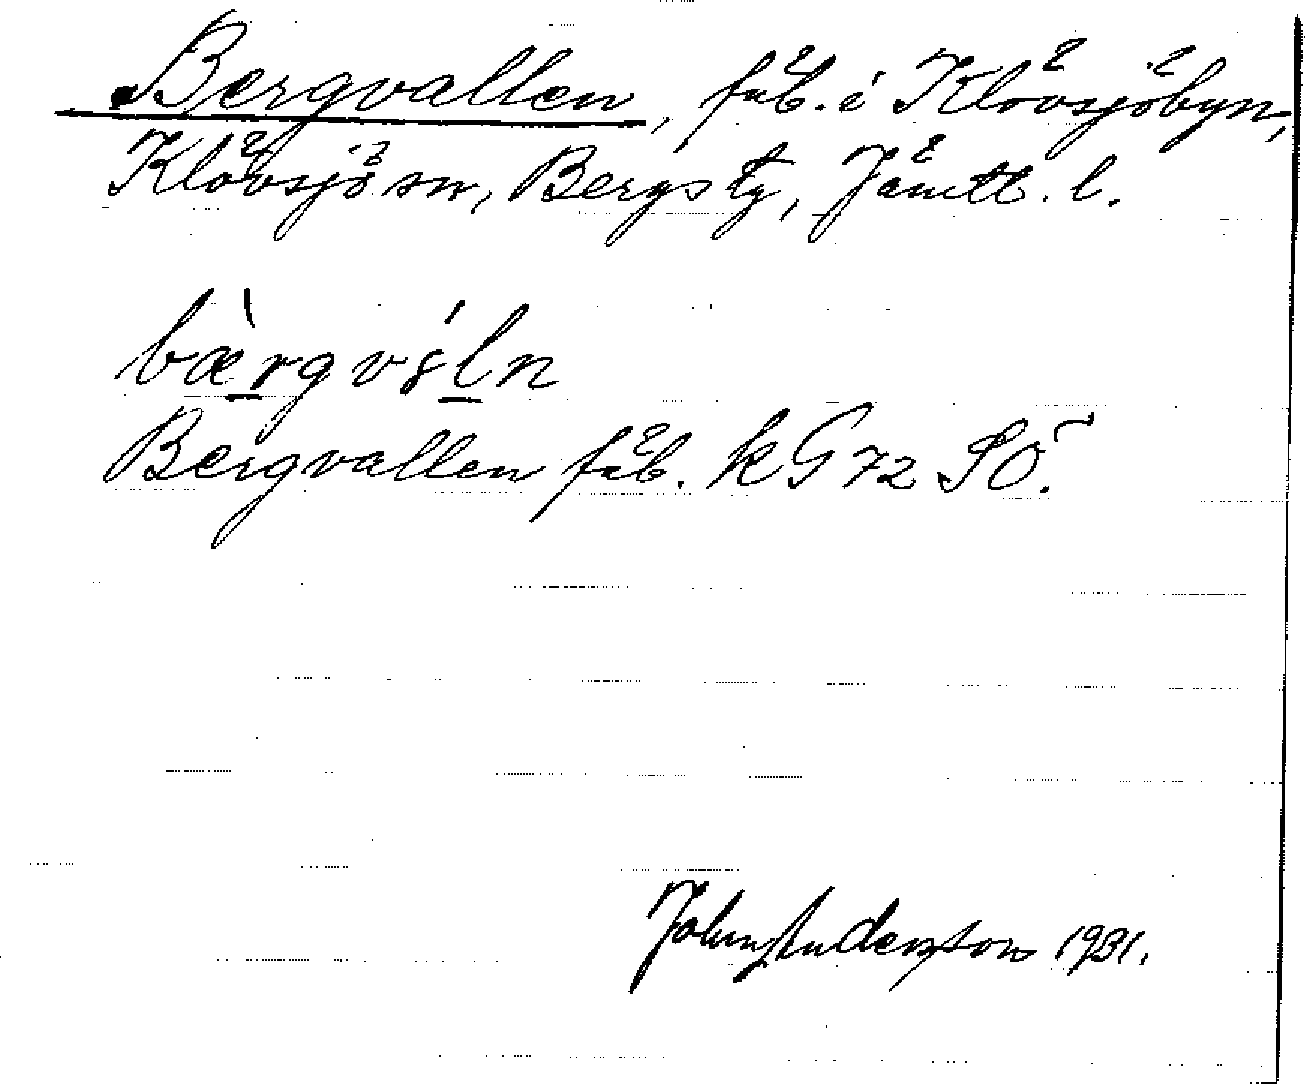 Bergvallen, fäb. i Klövsjöbyn,
Klövsjö sn, Bergs tg, Jämtl. l.
bærgvəln
Bergvallen fäb. kG72 SÖ.
John Anderzson 1931.